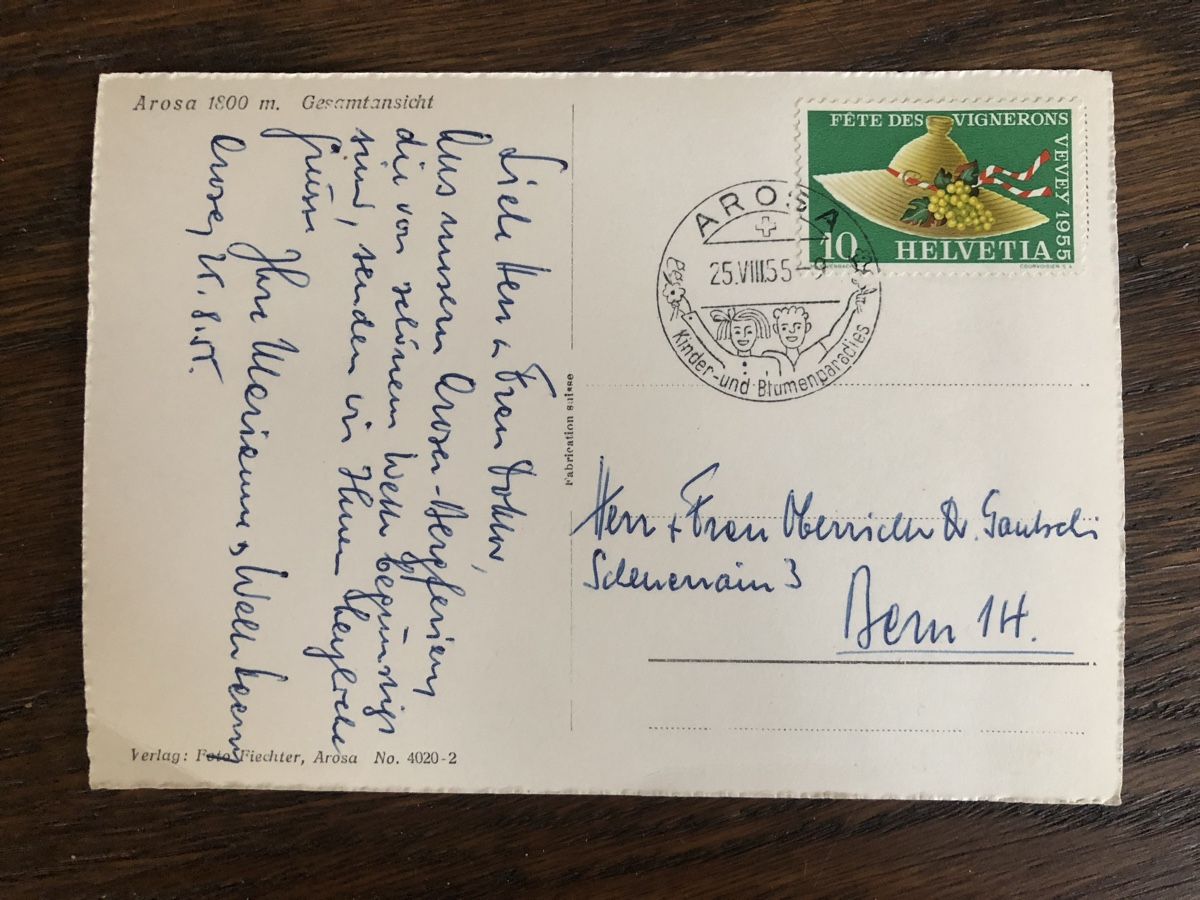 Arosa 1800 m. Gesamtansicht
Liebe Herr & Frau Doktor,
Aus unsern Aroser-Bergferien,
die von schönem Wetter begünstigt
sind, senden wir Ihnen herzliche
Grüsse
Ihre Marianne & Walter
Arosa, 25.8.55.
Verlag: Foto Fiechter, Arosa No. 4020-2
Fabrication suisse
FÊTE DES VIGNERONS
VEVEY 1955
10 HELVETIA
COURVOISIER S.A.
AROSA
25.VIII.55-9
Kinder- und Blumenparadies
Herr + Frau Oberrichter Dr. Gautschi
Scheuerrain 3
Bern 14.